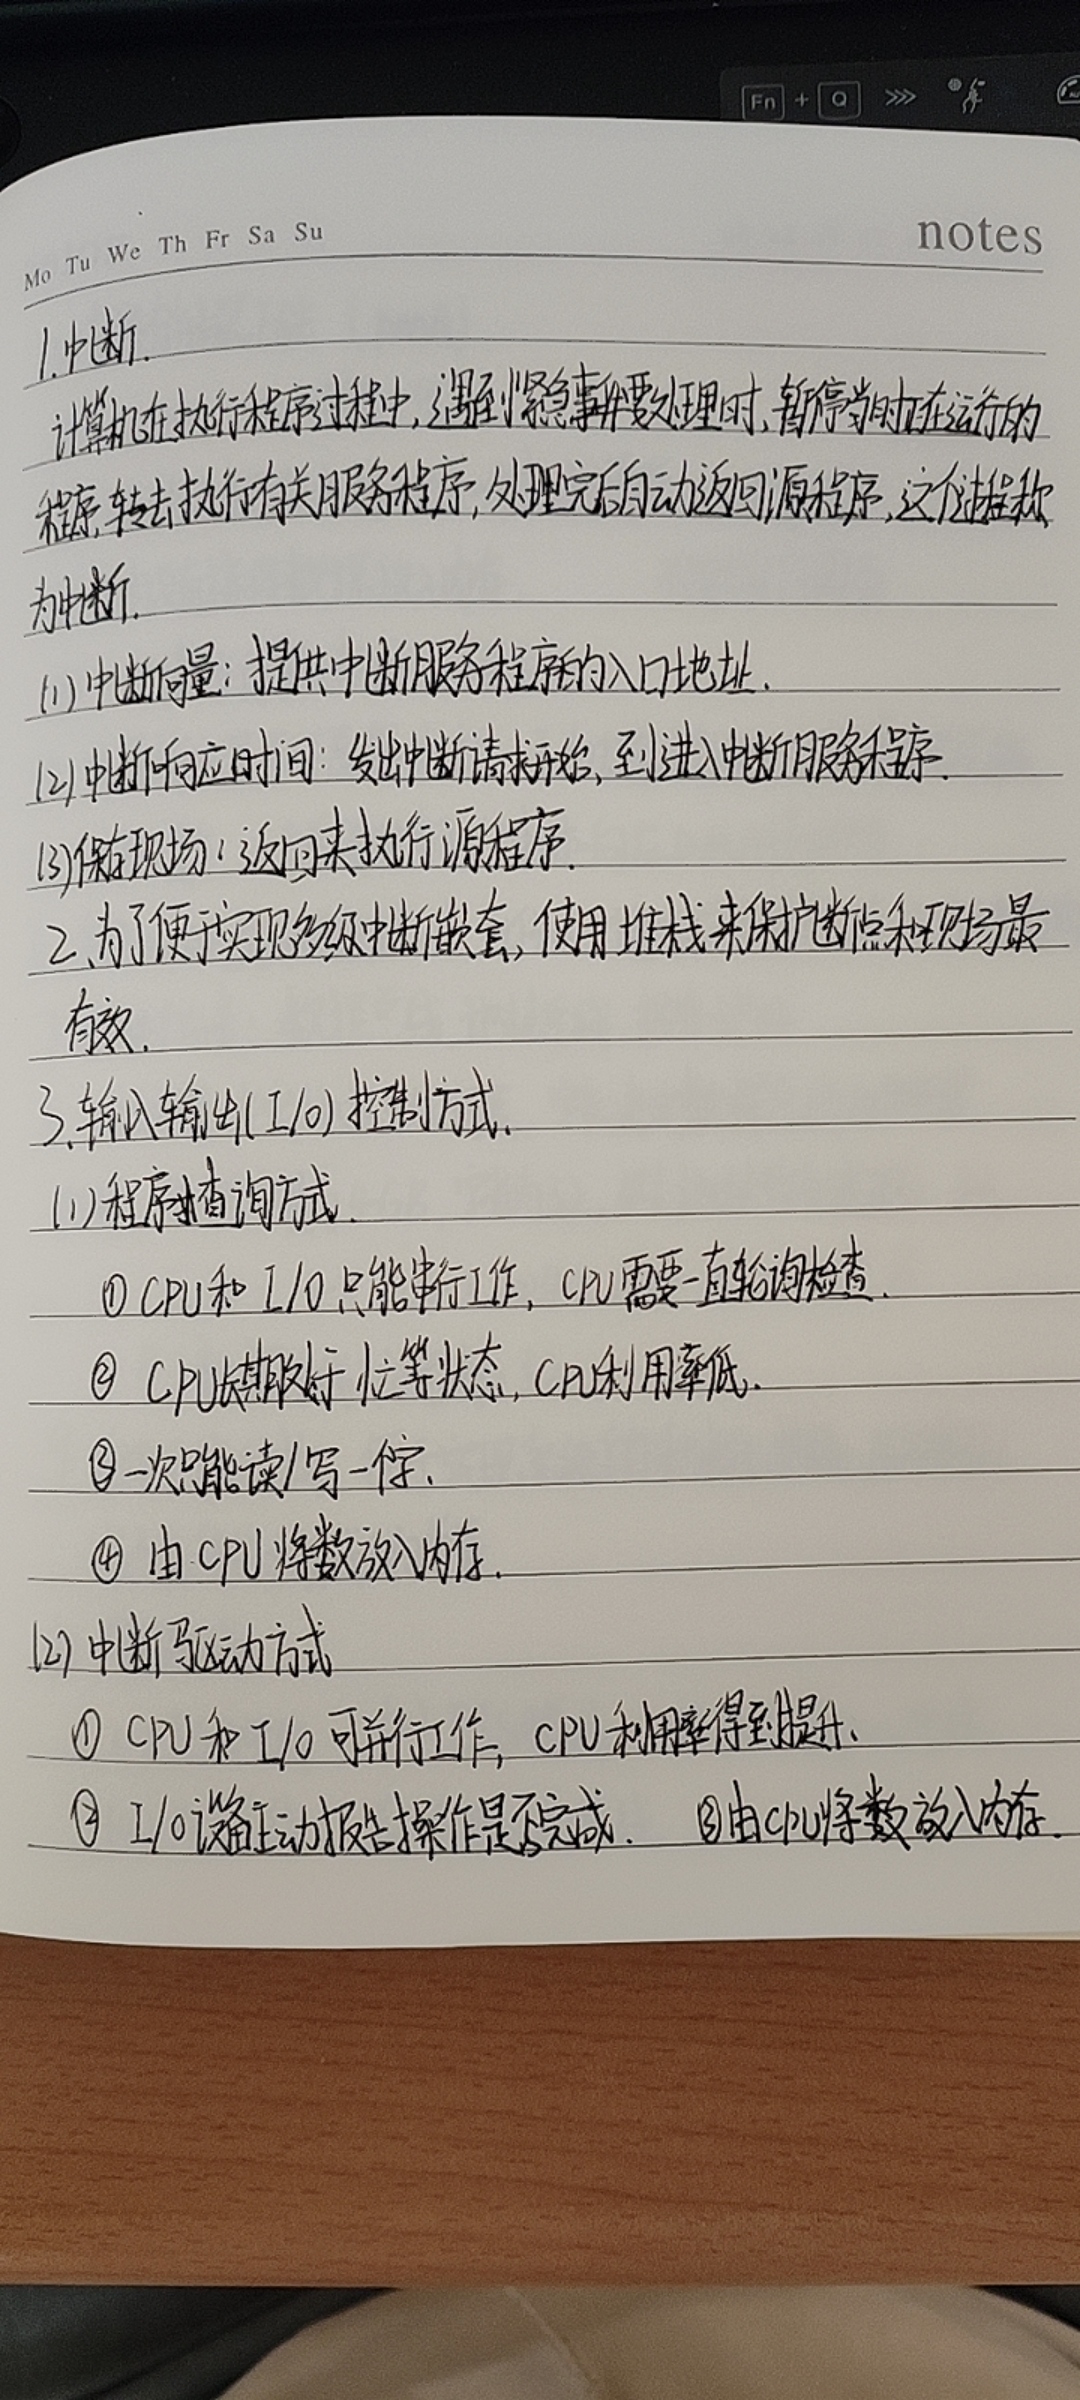 Fn + Q >>>
Mo Tu We Th Fr Sa Su
notes
1.中断.
计算机在执行程序过程中,遇到紧急事件要处理时,暂停当时正在运行的
程序,转去执行有关服务程序,处理完后自动返回源程序,这个过程称
为中断.
(1)中断向量:提供中断服务程序的入口地址.
(2)中断响应时间:发出中断请求开始,到进入中断服务程序.
(3)保存现场:返回来执行源程序.
2、为了便于实现多级中断嵌套,使用堆栈来保护断点和现场最
有效.
3.输入输出(I/O)控制方式.
(1)程序查询方式.
① CPU和 I/O 只能串行工作, CPU需要一直轮询检查.
② CPU长期处于忙等状态,CPU利用率低.
③一次只能读/写一个字.
④ 由CPU将数放入内存.
(2)中断驱动方式
① CPU和I/O可并行工作, CPU利用率得到提升.
② I/O设备主动报告操作是否完成. ③由CPU将数放入内存.